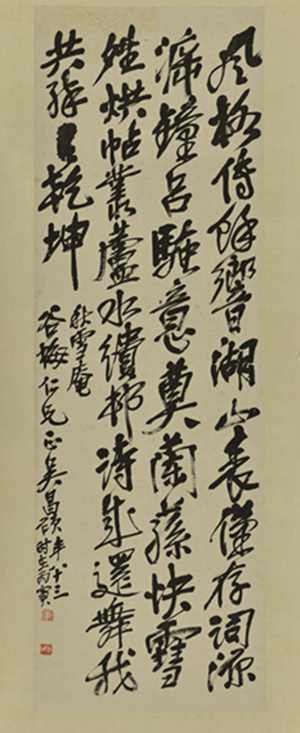 風格傳餘響湖山表僅存詞源
鐘呂騷意奠蘭蓀快雪
烘帖叢蘆水邨詩成還舞我
共醉乾坤
秋雪庵
谷梅仁兄正吳昌碩年八十三
時在丙寅